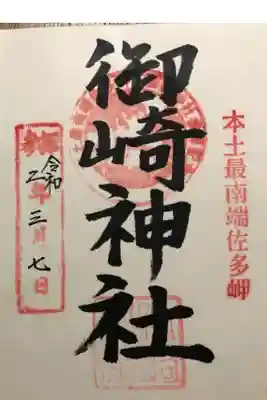 本土最南端佐多岬
御崎神社
奉拝
令和二年三月七日